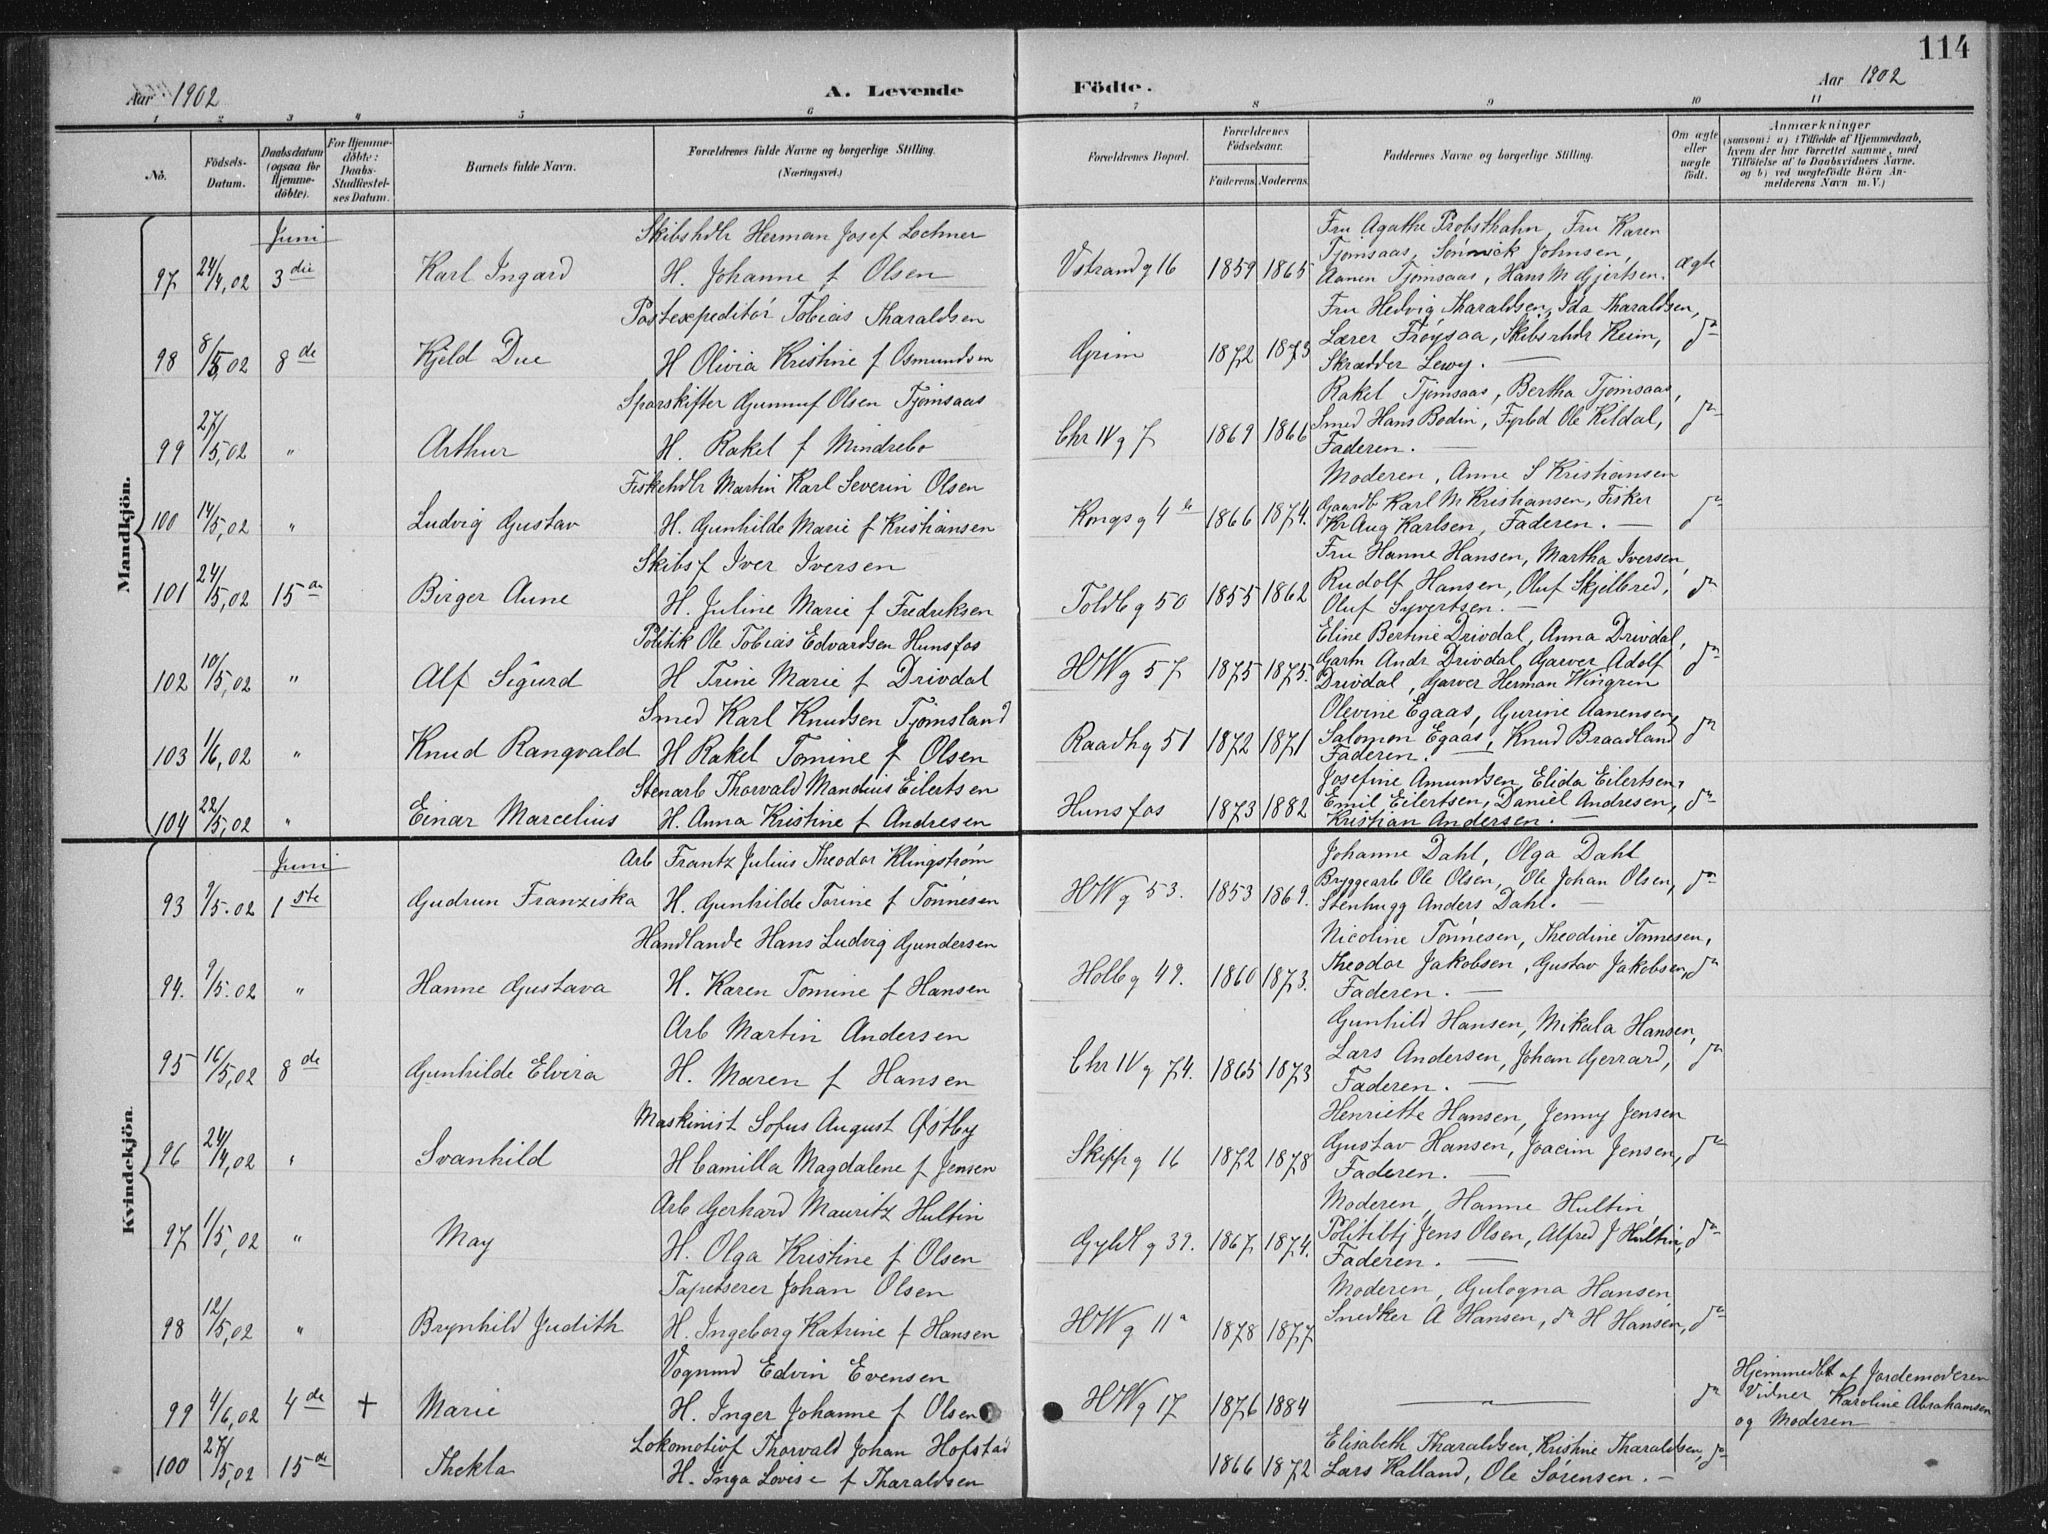 114
Aar 1902
A. Levende
Födte.
Aar 1902
1 2 3 4 5 6 7 8 9 10 11
No.
Födsels-Datum.
Daabsdatum (ogsaa for Hjemme-döbte).
For Hjemme-döbte: Daabs-Stadfæstelses Datum.
Barnets fulde Navn.
Forældrenes fulde Navne og borgerlige Stilling.
(Næringsvei.)
Forældrenes Bopæl.
Forældrenes Födselsaar.
Faderens. Moderens.
Faddernes Navne og borgerlige Stilling.
Om ægte eller uægte födt.
Anmærkninger
(saasom: a) i Tilfælde af Hjemmedaab, hvem der har forrettet samme, med Tilföielse af to Daabsvidners Navne. og b) ved uægtefödte Börn Anmelderens Navn m. V.)
Mandkjön.
Juni
Skibshdlr Herman Josef Lochner
Fru Agathe Probsthahn, Fru Karen
Tjomsaas, Sönnick Johnsen,
97 24/4,02 3die Karl Ingard H. Johanne f Olsen Vstrandg 16 1859 1865 Aanen Tjomsaas, Hans M Gjertsen. ægte
Postexpeditör Tobias Tharaldsen
Fru Hedvig Tharaldsen, Ida Tharaldsen,
Lærer Fröysaa, Skibsrhdr Keim,
98 8/5,02 8de Kjeld Due H Olivia Kristine f Osmundsen Grim 1872 1873 Skrædder Lewy. — do
Sporskifter Gunnuf Olsen Tjomsaas
Rakel Tjomsaas, Bertha Tjomsaas,
Smed Hans Bodin, Fyrbd Ole Kildal,
99 27/5,02 " Arthur H. Rakel f Mindrebo Chr IVg 7 1869 1866 Faderen. — do
Fiskehdlr Martin Karl Severin Olsen
Moderen, Anne S Kristiansen
Gaardb Karl M Kristiansen, Fisker
100 14/5,02 " Ludvig Gustav H. Gunhilde Marie f Kristiansen Kongsg 4b 1866 1874. Kr Aug Karlsen, Faderen. — do
Skibsf Iver Iversen
Fru Hanne Hansen, Martha Iversen,
Rudolf Hansen, Oluf Skjelbred,
101 24/5,02 15de Birger Aune H. Juline Marie f Fredriksen Toldbg 50 1855 1862 Oluf Syvertsen. — do
Politik Ole Tobias Edvardsen Hunsfos
Eline Bertine Drivdal, Anna Drivdal,
Gartn Andr Drivdal, Garver Adolf
102 10/5,02 " Alf Sigurd H Trine Marie f Drivdal HWg 57 1875 1875. Drivdal, Garver Herman Wingren do
Smed Karl Knudsen Tjomsland
Olevine Egaas, Gurine Aanensen,
Salomon Egaas, Knud Braadland
103 1/6,02 " Knud Rangvald H Rakel Tomine f Olsen Raadhg 51 1872 1871 Faderen. — do
Stenarb Thorvald Mandius Eilertsen
Josefine Amundsen, Elida Eilertsen,
Emil Eilertsen, Daniel Andresen,
104 22/5,02 " Einar Marcelius H. Anna Kristine f Andresen Hunsfos 1873 1882 Kristian Andersen. — do
Kvindekjön.
Juni
Arb Frantz Julius Theodor Klingström
Johanne Dahl, Olga Dahl
Bryggearb Ole Olsen, Ole Johan Olsen,
93 9/5.02 1ste Gudrun Franziska H. Gunhilde Torine f Tönnesen HWg 53. 1853 1869. Stenhugg Anders Dahl. — do
Handlande Hans Ludvig Gundersen
Nicoline Tönnesen, Theodine Tonnesen,
Theodor Jakobsen, Gustav Jakobsen,
94. 9/5.02 " Hanne Gustava H. Karen Tomine f Hansen Holbg 49. 1860 1873. Faderen. — do
Arb Martin Andersen
Gunhild Hansen, Mikala Hansen,
Lars Andersen, Johan Gerrard,
95 16/5,02 8de Gunhilde Elvira H. Maren f Hansen Chr IVg 74. 1865 1873 Faderen. — do
Maskinist Sofus August Østby
Henriette Hansen, Jenny Jensen
Gustav Hansen, Joacim Jensen,
96 24/4,02 " Svanhild H Camilla Magdalene f Jensen Skippg 16 1872 1878 Faderen. — do
Arb Gerhard Mauritz Hultin
Moderen, Hanne Hultin,
Politibtj Jens Olsen, Alfred J Hultin,
97 1/5,02 " May H. Olga Kristine f Olsen Gyldlg 39. 1867 1874. Faderen. — do
Tapetserer Johan Olsen
Moderen, Gulogna Hansen,
98 12/5,02 " Brynhild Judith H. Ingeborg Katrine f Hansen HWg 11a 1878 1877 Snedker A Hansen, do H Hansen, do
Vognmd Edvin Evensen
Hjemmedbt af Jordemoderen
99 4/6,02 4de + Marie H. Inger Johanne f Olsen HWg 17 1876 1884 — " — do Vidner Karoline Abrahamsen
og Moderen
Lokomotivf Thorvald Johan Hofstad
Elisabeth Tharaldsen, Kristine Tharaldsen,
100 27/5,02 15de Thekla H. Inga Lovise f Tharaldsen 1866 1872 Lars Kalland, Ole Sörensen. — do